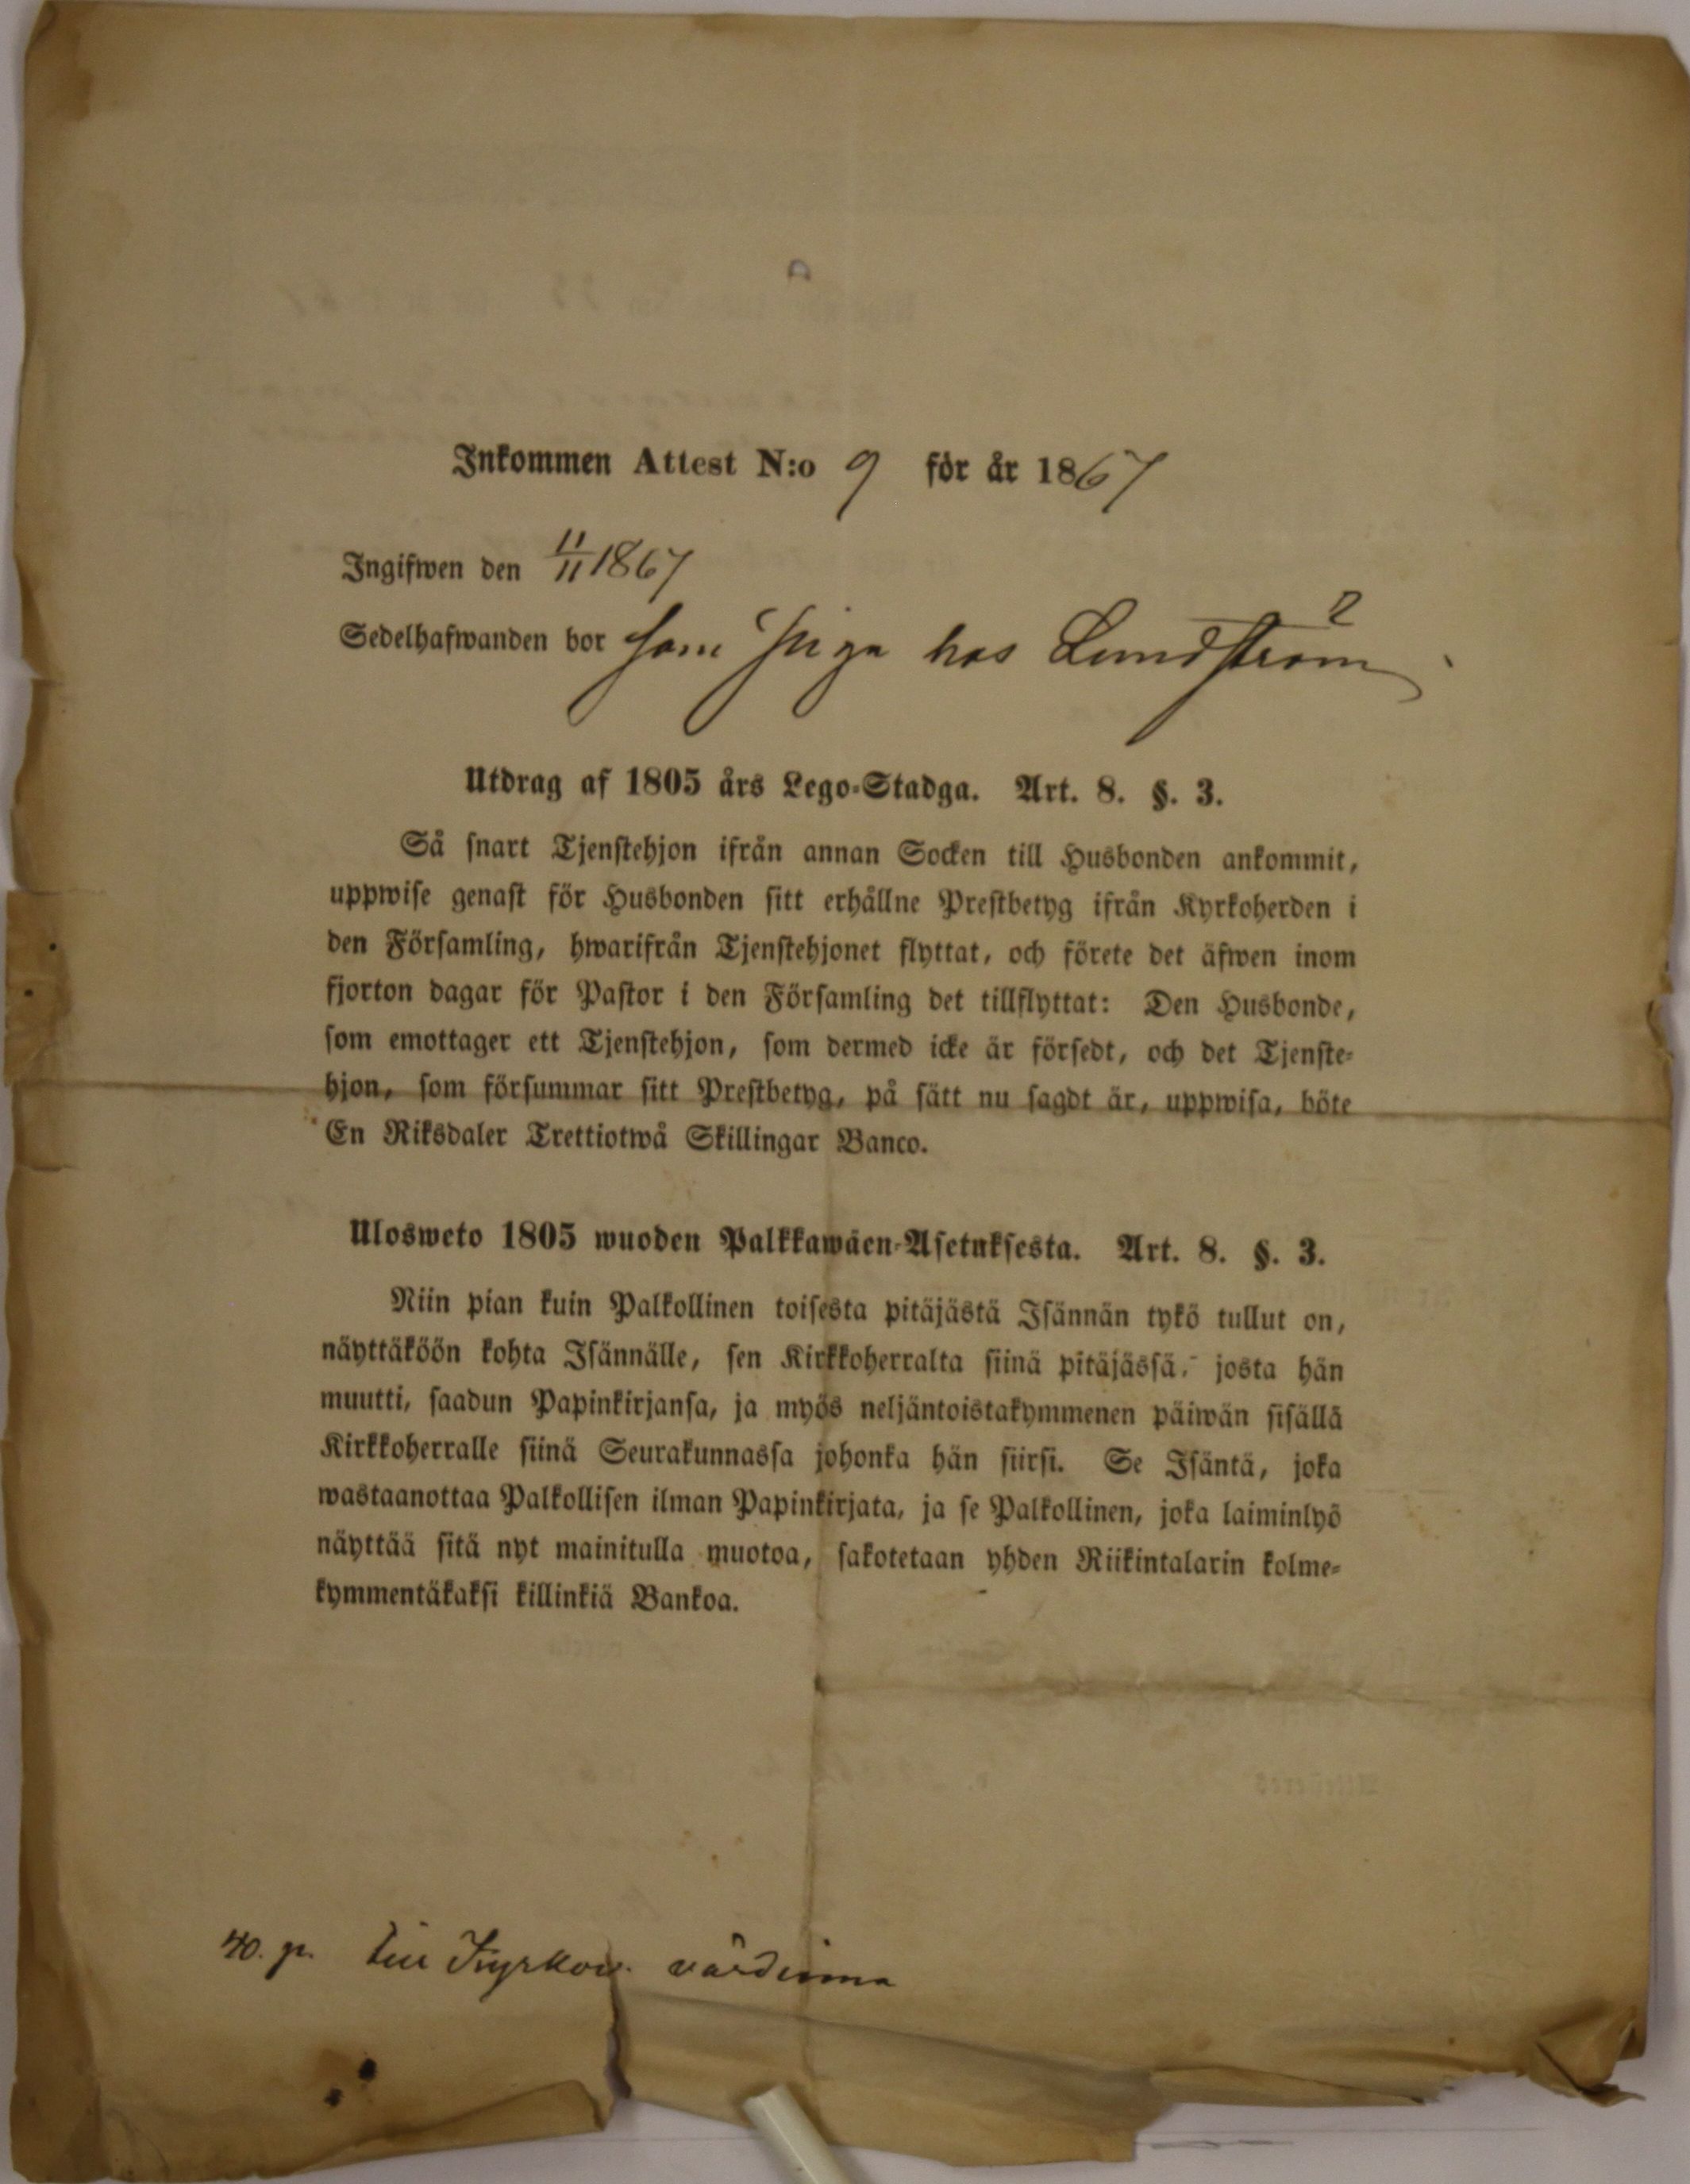 Inkommen Attest N:o 9 för år 1867
Ingifwen den 11/11 1867
Sedelhafwanden bor som piga hos Lundström
Utdrag af 1805 års Lego-Stadga. Art. 8. §. 3.
Så snart Tjenstehjon ifrån annan Socken till Husbonden ankommit,
uppwise genast för Husbonden sitt erhållne Prestbetyg ifrån Kyrkoherden i
den Församling, hwarifrån Tjenstehjonet flyttat, och förete det äfwen inom
fjorton dagar för Pastor i den Församling det tillflyttat: Den Husbonde,
som emottager ett Tjenstehjon, som dermed icke är försedt, och det Tjenste-
hjon, som försummar sitt Prestbetyg, på sätt nu sagdt är, uppwisa, böte
En Riksdaler Trettiotwå Skillingar Banco.
Ulosweto 1805 wuoden Palkkawäen-Asetuksesta. Art. 8. §. 3.
Niin pian kuin Palkollinen toisesta pitäjästä Isännän tykö tullut on,
näyttäköön kohta Isännälle, sen Kirkkoherralta siinä pitäjässä, josta hän
muutti, saadun Papinkirjansa, ja myös neljäntoistakymmenen päiwän sisällä
Kirkkoherralle siinä Seurakunnassa johonka hän siirsi. Se Isäntä, joka
wastaanottaa Palkollisen ilman Papinkirjata, ja se Palkollinen, joka laiminlyö
näyttää sitä nyt mainitulla muotoa, sakotetaan yhden Riikintalarin kolme-
kymmentäkaksi killinkiä Bankoa.
40. p. Kyrkov. värdinna